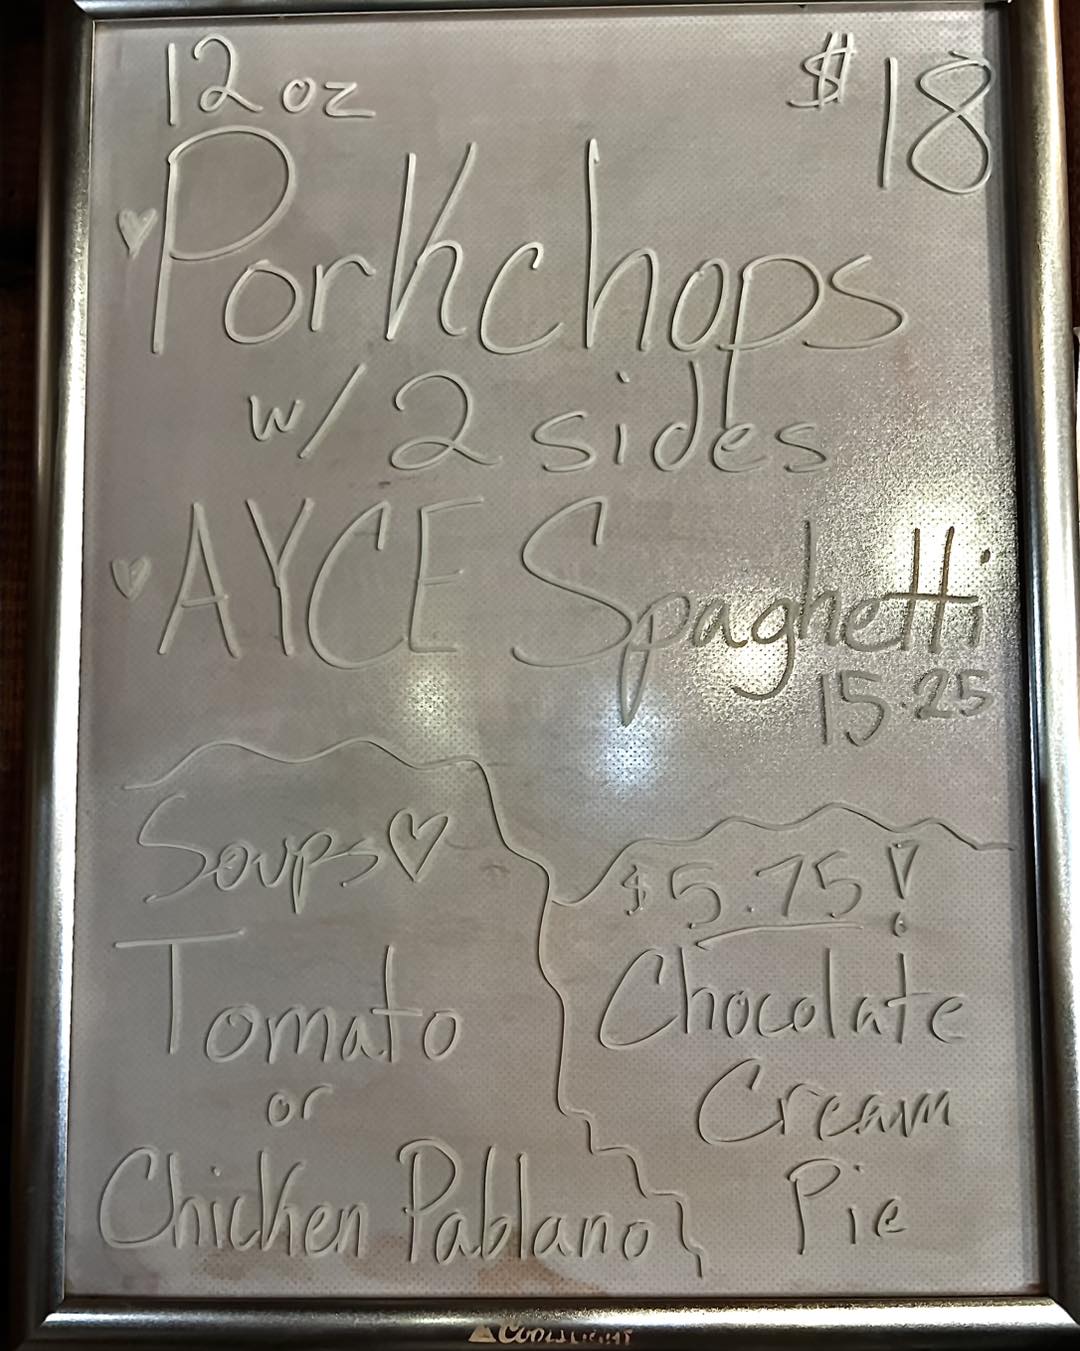 12 oz $18
♥ Porkchops
w/ 2 sides
♥ AYCE Spaghetti
15.25
Soups ♥
Tomato
or
Chicken Pablano
$5.75!
Chocolate
Cream
Pie
Coors Light